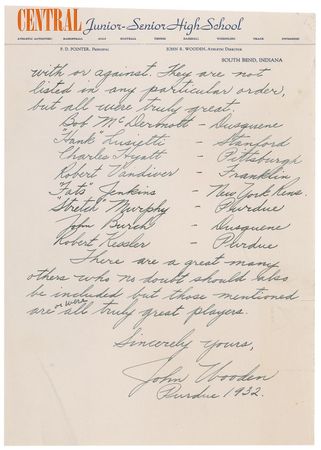 CENTRAL Junior-Senior High School
ATHLETIC ACTIVITIES: BASKETBALL GOLF FOOTBALL TENNIS BASEBALL WRESTLING TRACK SWIMMING
P. D. POINTER, Principal JOHN R. WOODEN, Athletic Director
SOUTH BEND, INDIANA
with or against. They are not
listed in any particular order,
but all were truly great.
Bob McDermott - Dusquene
"Hank" Lusietti - Stanford
Charles Hyatt - Pittsburgh
Robert Vandiver - Franklin
"Fats" Jenkins - New York Rens.
"Stretch" Murphy - Purdue
John Burch - Dusquene
Robert Kessler - Purdue
There are a great many
others who no doubt should also
be included but those mentioned
are or were all truly great players.
Sincerely yours,
John Wooden
Purdue 1932.